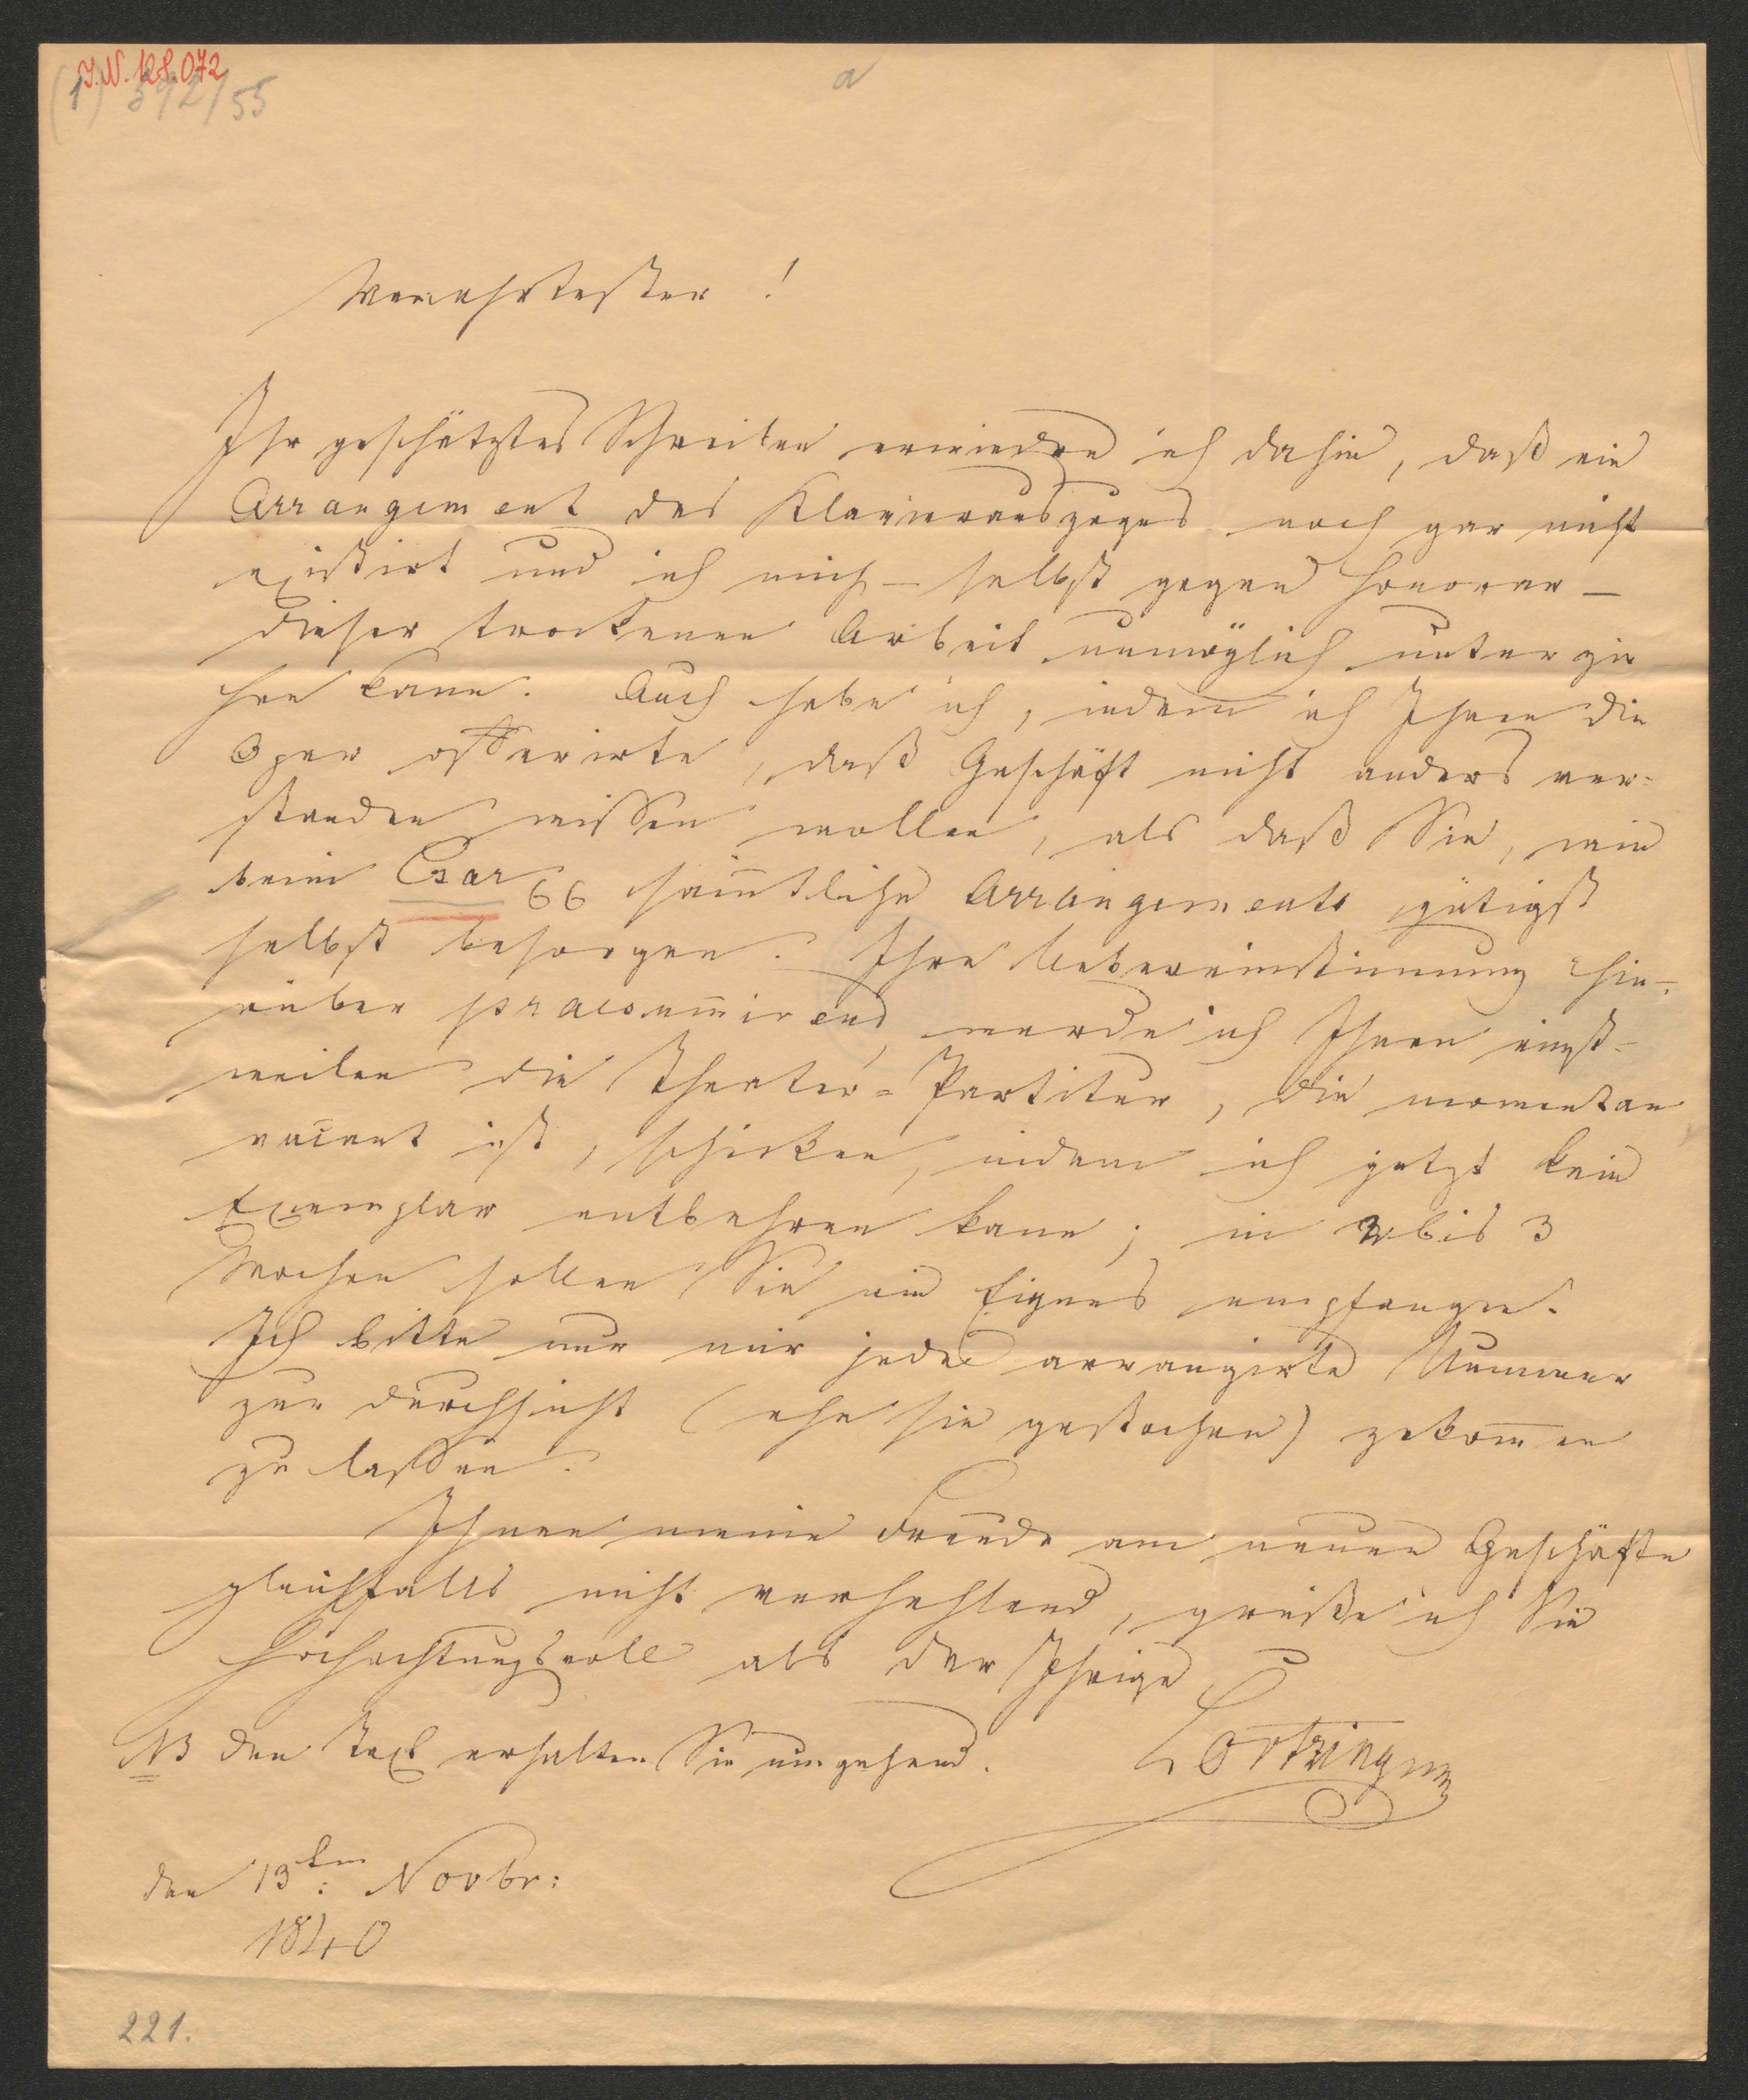 I.N. 128.072
(1) 392/55
a
Verehrtester!
Ihr geschätztes Schreiben erwiedre ich dahin, daß ein
Arrangement des Klavierauszuges noch gar nicht
existirt und ich mich – selbst gegen Honorar –
dieser trockenen Arbeit unmöglich unterzie
hen kann. Auch habe ich, indem ich Ihnen die
Oper offerirte, daß Geschäft nicht anders ver-
standen wissen wollen, als daß Sie, wie
beim Czar sämtliche Arrangements gütigst
selbst besorgen. Ihre Uebereinstimmung hie-
rüber praesumirend, werde ich Ihnen einst-
weilen die Theater-Partitur, die momentan
vacant ist, schicken, indem ich jetzt kein
Exemplar entbehren kann; in 2 bis 3
Wochen sollen Sie ein Eignes empfangen.
Ich bitte nur mir jede arrangirte Nummer
zur Durchsicht (ehe sie gestochen) zukommen
zu lassen.
Ihnen meine Freude am neuen Geschäfte
gleichfalls nicht verhehlend, grüße ich Sie
hochachtungsvoll als der Ihrige
Lortzing
NB den Text erhalten Sie umgehend.
den 13ten: Novbr:
1840
221.